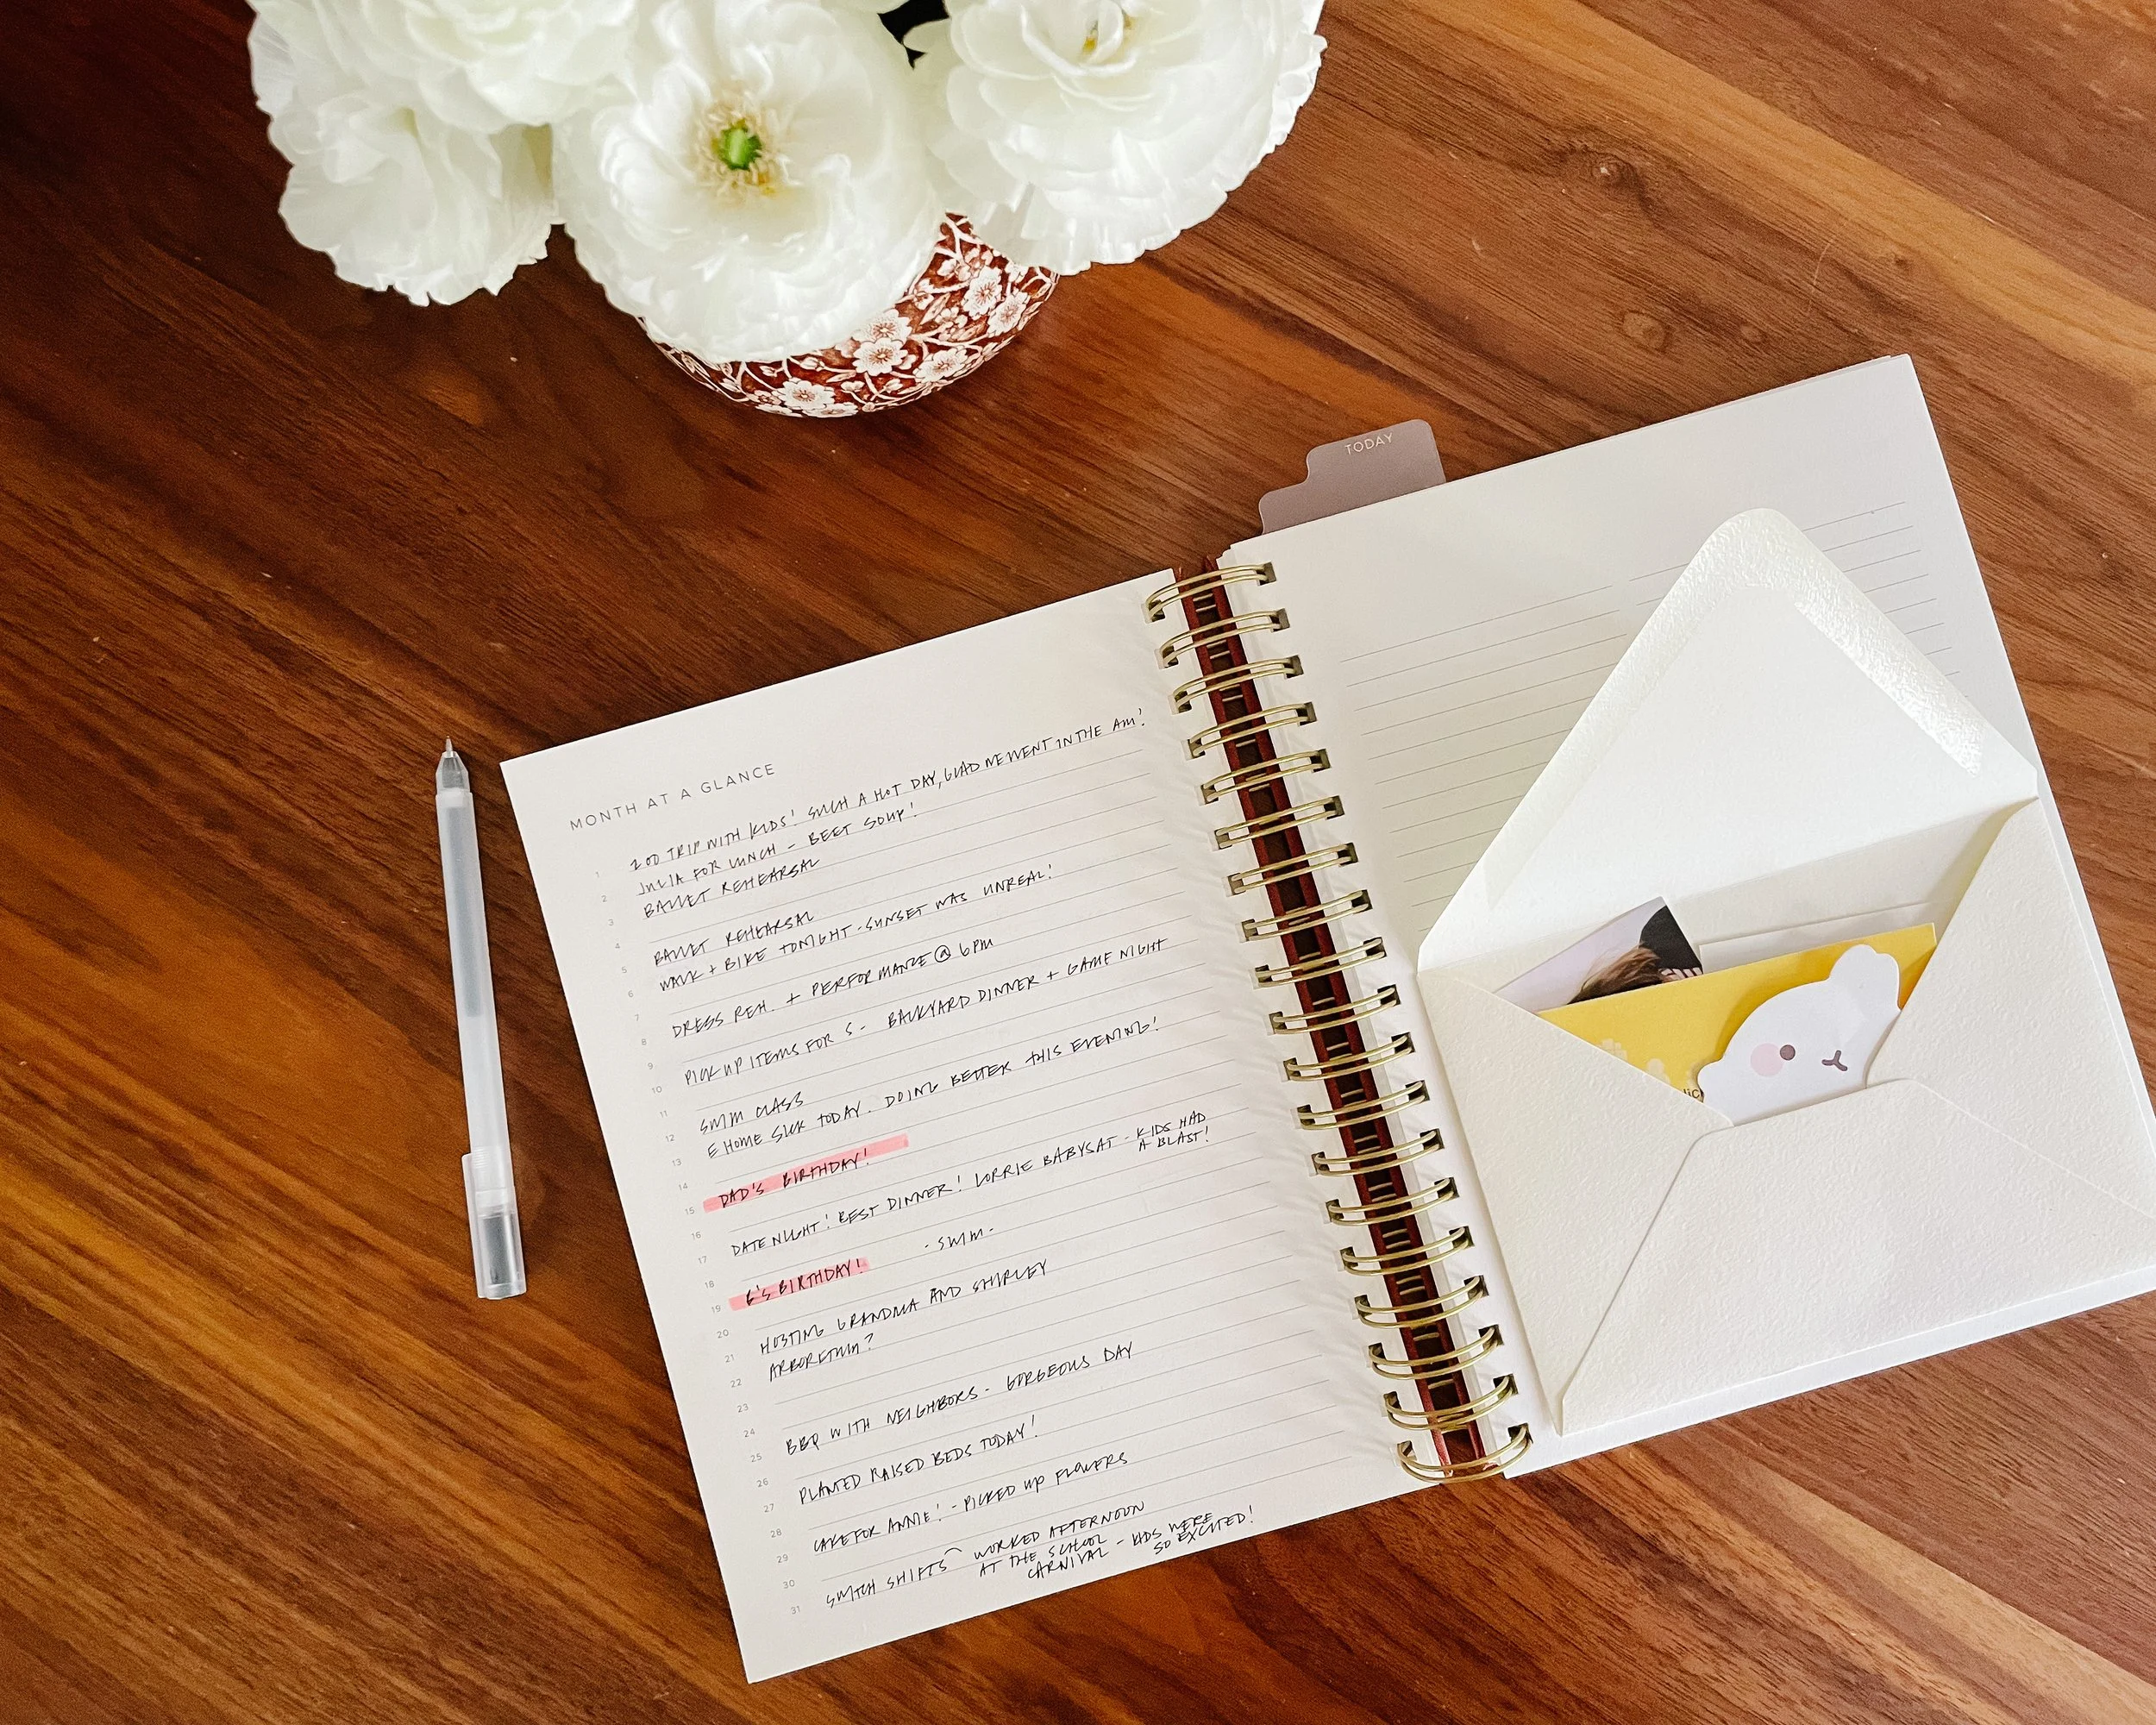 TODAY
MONTH AT A GLANCE
1 ZOO TRIP WITH KIDS! SUCH A HOT DAY, GLAD WE WENT IN THE AM!
2 JULIA FOR LUNCH - BEET SOUP!
3 BALLET REHEARSAL
4
5 BALLET REHEARSAL
6 WALK + BIKE TONIGHT - SUNSET WAS UNREAL!
7
8 DRESS REH. + PERFORMANCE @ 6PM
9
10 PICK UP ITEMS FOR S - BACKYARD DINNER + GAME NIGHT
11
12 SWIM CLASS
13 E HOME SICK TODAY. DOING BETTER THIS EVENING!
14
15 DAD'S BIRTHDAY!
16
17 DATE NIGHT! BEST DINNER! LORRIE BABYSAT - KIDS HAD
A BLAST!
18
19 E'S BIRTHDAY! - SWIM -
20
21 HOSTING GRANDMA AND SHIRLEY
22 ARBORETUM?
23
24
25 BBQ WITH NEIGHBORS - GORGEOUS DAY
26
27 PLANTED RAISED BEDS TODAY!
28
29 CAKE FOR ANNIE! - PICKED UP FLOWERS
30
31 SWITCH SHIFTS WORKED AFTERNOON
AT THE SCHOOL
CARNIVAL - KIDS WERE
SO EXCITED!